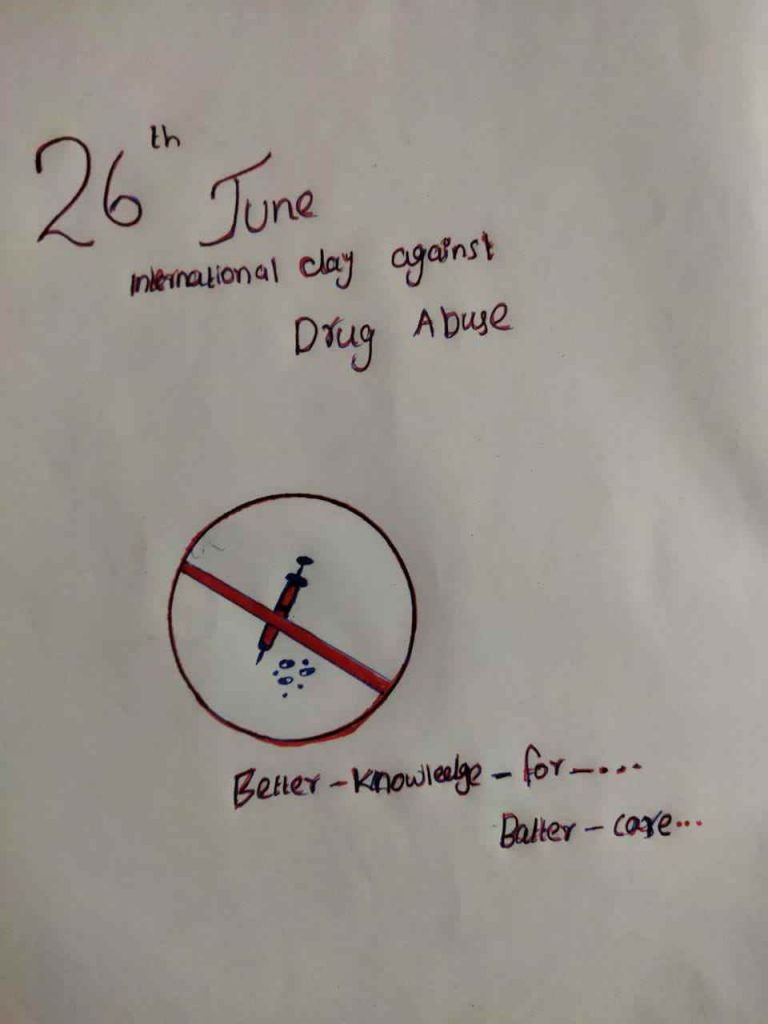 26th June
International day against
Drug Abuse
Better - Knowledge - for - ....
Batter - care...